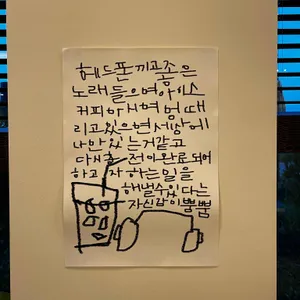 헤드폰 끼고 좋은
노래 들으며 아이스
커피 마시며 멍 때
리고 있으면 세상에
나만 있는거 같고
다시 충전이 완료 되어
하고자 하는 일을
해낼 수 있다는
자신감이 뿜뿜